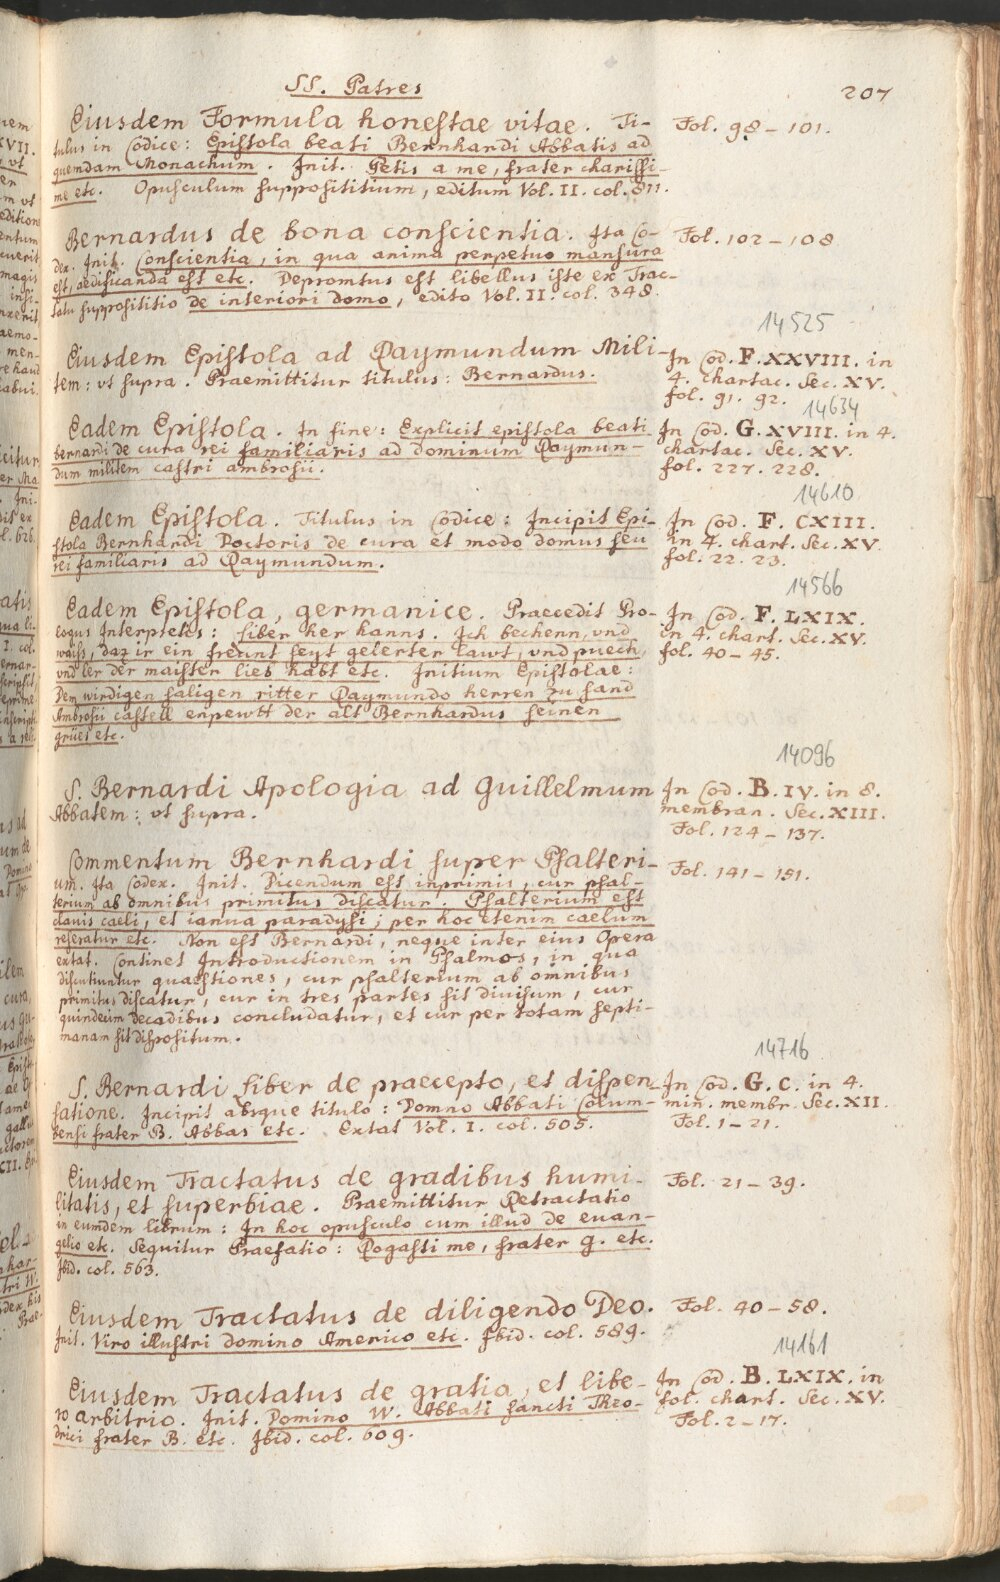 SS. Patres
207
Eiusdem Formula honestae vitae. Ti-
Fol. 98 – 101.
tulus in Codice: Epistola beati Bernhardi Abbatis ad
quemdam Monachum. Init. Petis a me, frater charissi-
me etc. Opusculum supposititium, editum Vol. II. col. 811.
Bernardus de bona conscientia. Ita Co-
Fol. 102 – 108
dex. Init. Conscientia, in qua anima perpetuo mansura
est, aedificanda est etc. Depromtus est libellus iste ex Trac-
tatu supposititio de interiori domo, edito Vol. II. col. 348.
14525
Eiusdem Epistola ad Raymundum Mili-
In Cod. F. XXVIII. in
tem: ut supra. Praemittitur titulus: Bernardus.
4. chartac. Sec. XV.
fol. 91. 92.
14634
Eadem Epistola. In fine: Explicit epistola beati
In Cod. G. XVIII. in 4.
bernardi de cura rei familiaris ad dominum Raymun-
chartac. Sec. XV.
dum militem castri ambrosii.
fol. 227. 228.
14610
Eadem Epistola. Titulus in Codice: Incipit Epi-
In Cod. F. CXIII.
stola Bernhardi Doctoris de cura et modo domus seu
in 4. chart. Sec. XV.
rei familiaris ad Raymundum.
fol. 22. 23.
14566
Eadem Epistola, germanice. Praecedit Pro-
In Cod. F. LXIX.
logus Interpretis: Liber her hanns. Ich bechenn, vnd
in 4. chart. Sec. XV.
waiss, daz ir ein freunt seyt gelerter lawt, vnd puech,
fol. 40 – 45.
vnd ler der maister lieb habt etc. Initium Epistolae:
Dem wirdigen saligen ritter Raymundo herren zu sand
Ambrosii castell enpewtt der alt Bernhardus seinen
grües etc.
14096
S. Bernardi Apologia ad Guillelmum
In Cod. B. IV. in 8.
Abbatem: ut supra.
membran. Sec. XIII.
Fol. 124 – 137.
Commentum Bernhardi super Psalteri-
Fol. 141 – 151.
um. Ita Codex. Init. Dicendum est inprimis, cur psal-
terium ab omnibus primitus discatur. Psalterium est
clavis caeli, et ianua paradysi; per hoc etenim caelum
reseratur etc. Non est Bernardi, neque inter eius Opera
extat. Continet Introductionem in Psalmos, in qua
discutiuntur quaestiones, cur psalterium ab omnibus
primitus discatur, cur in tres partes sit divisum, cur
quindeum decadibus concludatur, et cur per totam septi-
manam sit dispositum.
14716
S. Bernardi Liber de praecepto, et dispen-
In Cod. G. C. in 4.
satione. Incipit absque titulo: Domno Abbati Colum-
min. membr. Sec. XII.
bensi frater B. Abbas etc. Extat Vol. I. col. 505.
Fol. 1 – 21.
Eiusdem Tractatus de gradibus humi-
Fol. 21 – 39.
litatis, et superbiae. Praemittitur Retractatio
in eumdem librum: In hoc opusculo cum illud de euan-
gelio etc. Sequitur Praefatio: Rogasti me, frater G. etc.
Ibid. col. 563.
Eiusdem Tractatus de diligendo Deo.
Fol. 40 – 58.
Init. Viro illustri domino Americo etc. Ibid. col. 589.
14161
Eiusdem Tractatus de gratia, et libe-
In Cod. B. LXIX. in
ro arbitrio. Init. Domino W. Abbati sancti Theo-
fol. chart. Sec. XV.
drici frater B. etc. Ibid. col. 609.
Fol. 2 – 17.